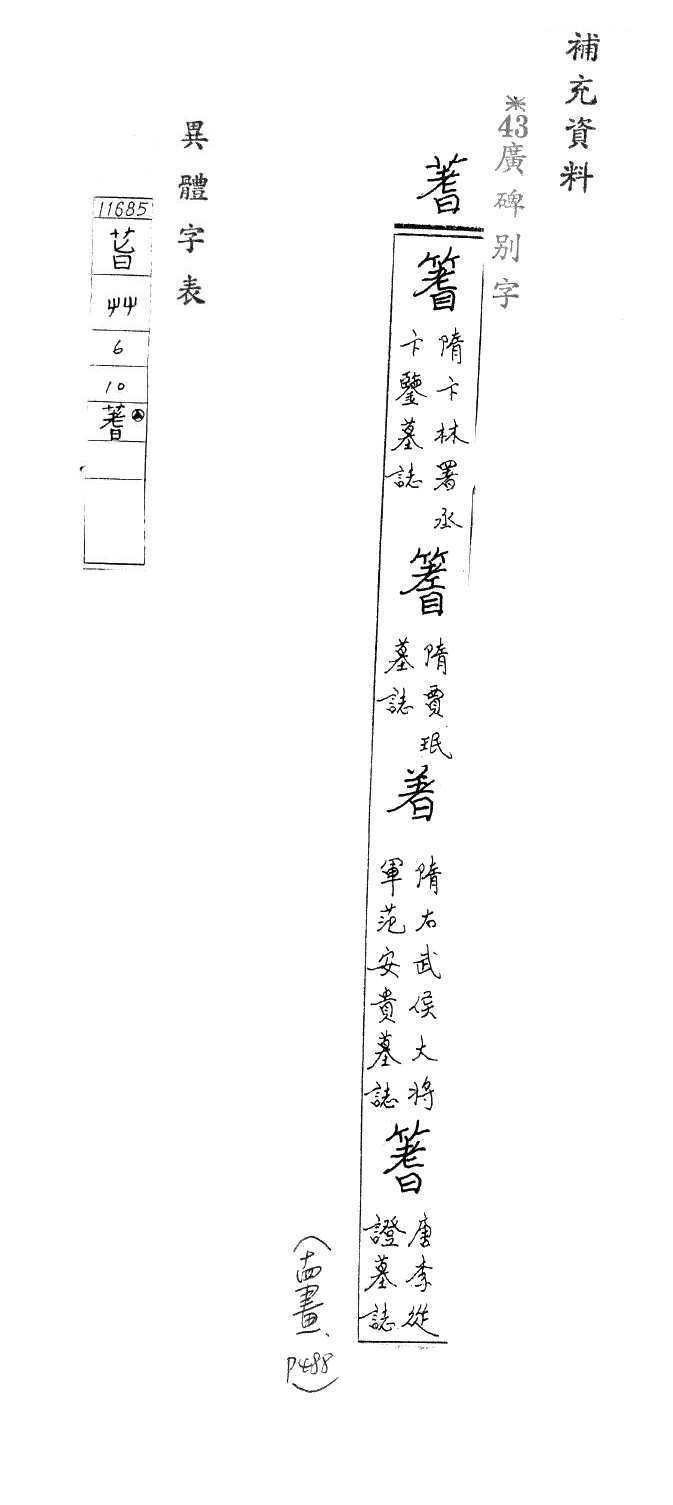 補充資料
※43廣碑別字
蓍
隋卞林署丞
卞鑒墓誌
隋賈珉
墓誌
隋右武侯大將
軍范安貴墓誌
唐李從
證墓誌
(十四畫、P488)
異體字表
11685
艸
6
10
蓍